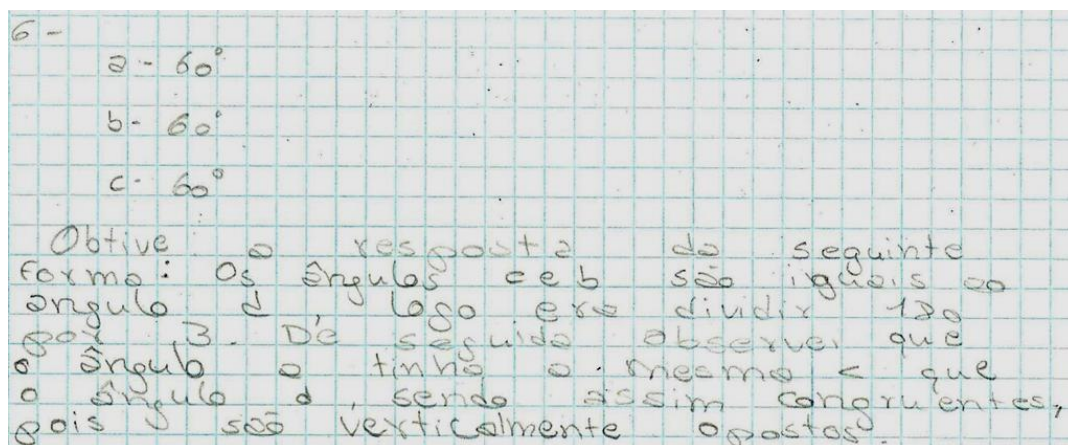 6 -
a - 60°
b - 60°
c - 60°
Obtive a resposta da seguinte
forma: Os ângulos c e b são iguais ao
ângulo d, logo era dividir 180
por 3. De seguida observei que
o ângulo a tinha o mesmo < que
o ângulo d, sendo assim congruentes,
pois são verticalmente opostos.